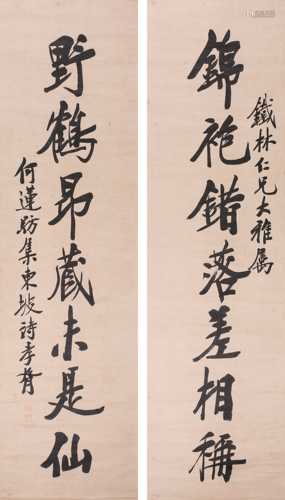 鐵林仁兄大雅属
錦袍錯落差相稱
野鶴昂藏未是仙
何蓮舫集東坡詩孝胥